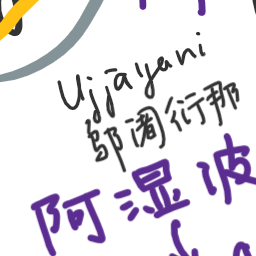 Ujjayani
鄔闍衍那
阿湿波